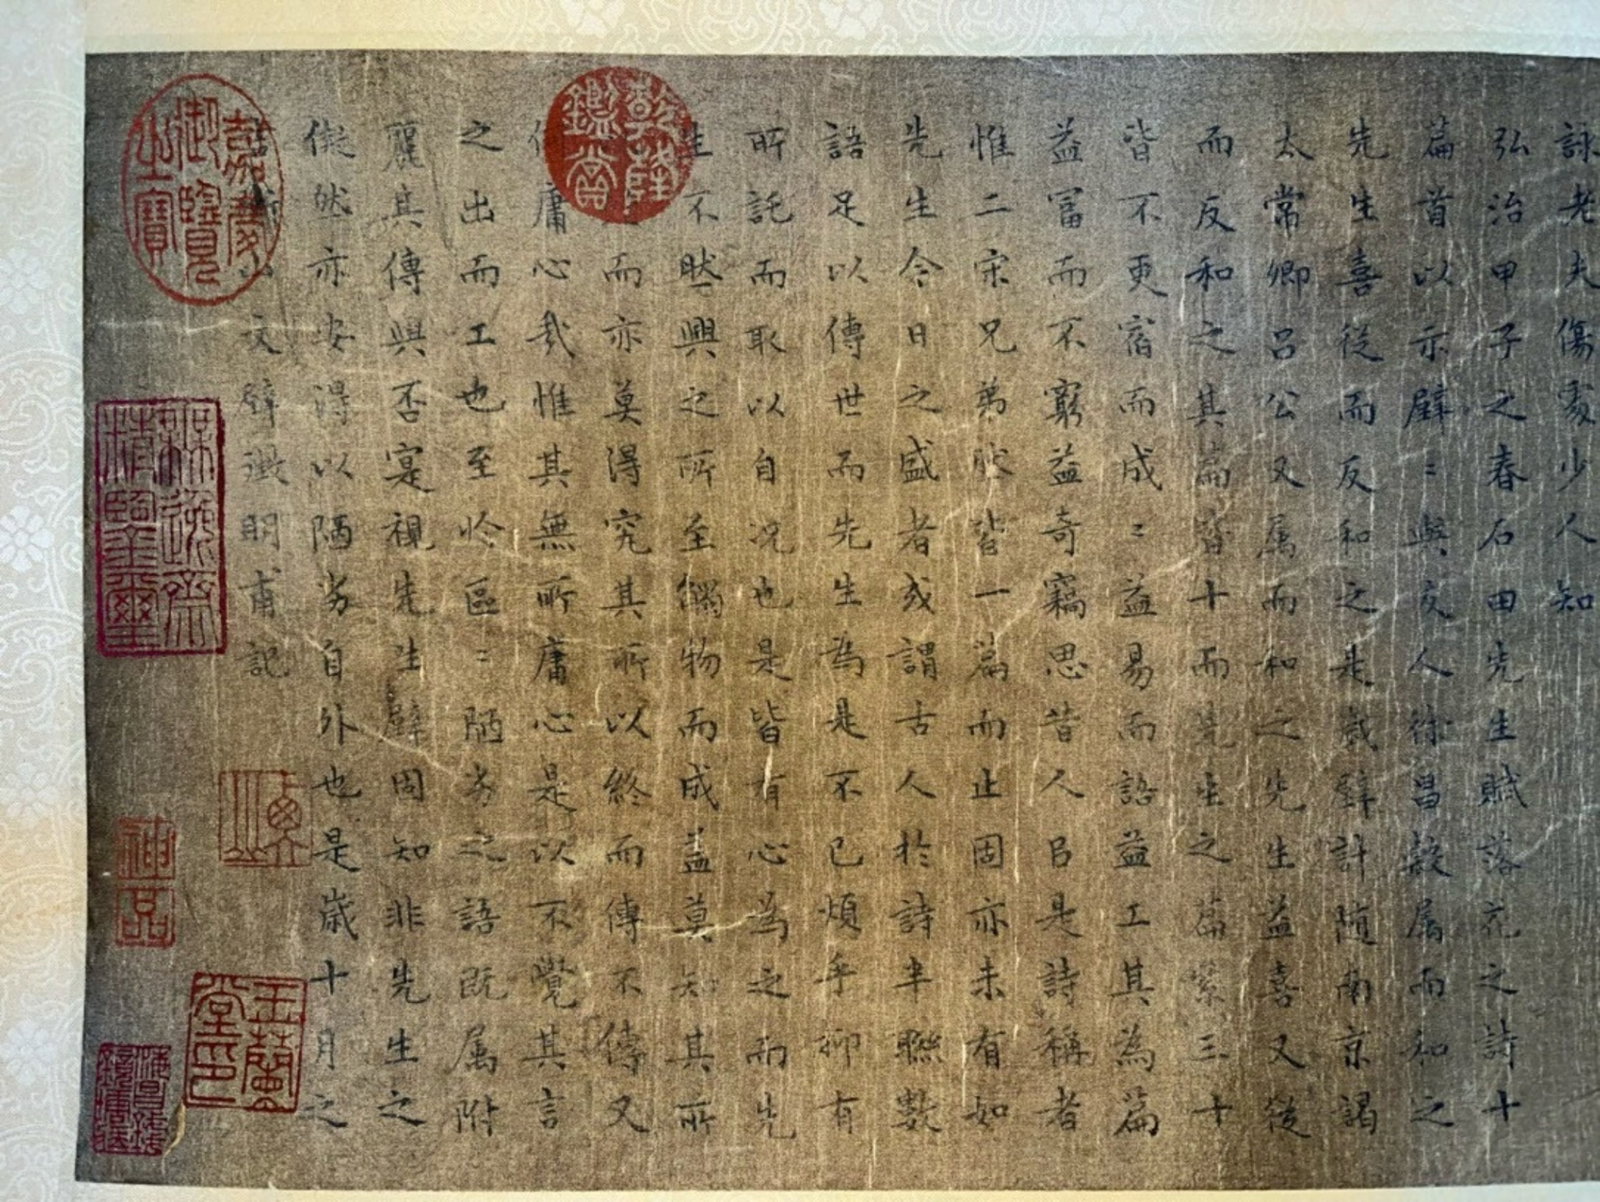 詠老夫傷處少人知
弘治甲子之春石田先生賦落花之詩十
篇首以示璧〻與友人徐昌穀属而和之
先生喜從而反和之是歲璧計隨南京謁
太常卿呂公又属而和之先生益喜又從
而反和之其篇皆十而先生之篇絫三十
皆不更宿而成〻益易而語益工其為篇
益富而不窮益奇竊思昔人以是詩稱者
惟二宋兄弟然皆一篇而止固亦未有如
先生今日之盛者或謂古人於詩半聯數
語足以傳世而先生為是不已煩乎抑有
所託而取以自况也是皆有心為之而先
生不然興之所至觸物而成蓋莫知其所
而亦莫得究其所以終而傳不傳又
何庸心哉惟其無所庸心是以不覺其言
之出而工也至於區〻陋劣之語既属附
麗其傳與否寔視先生璧固知非先生之
儗然亦安得以陋劣自外也是歲十月之
吉衡山文璧徵明甫記
乾隆鑑賞
嘉慶御覽之寶
逸齋精鑒璽
神品
玉蘭堂印